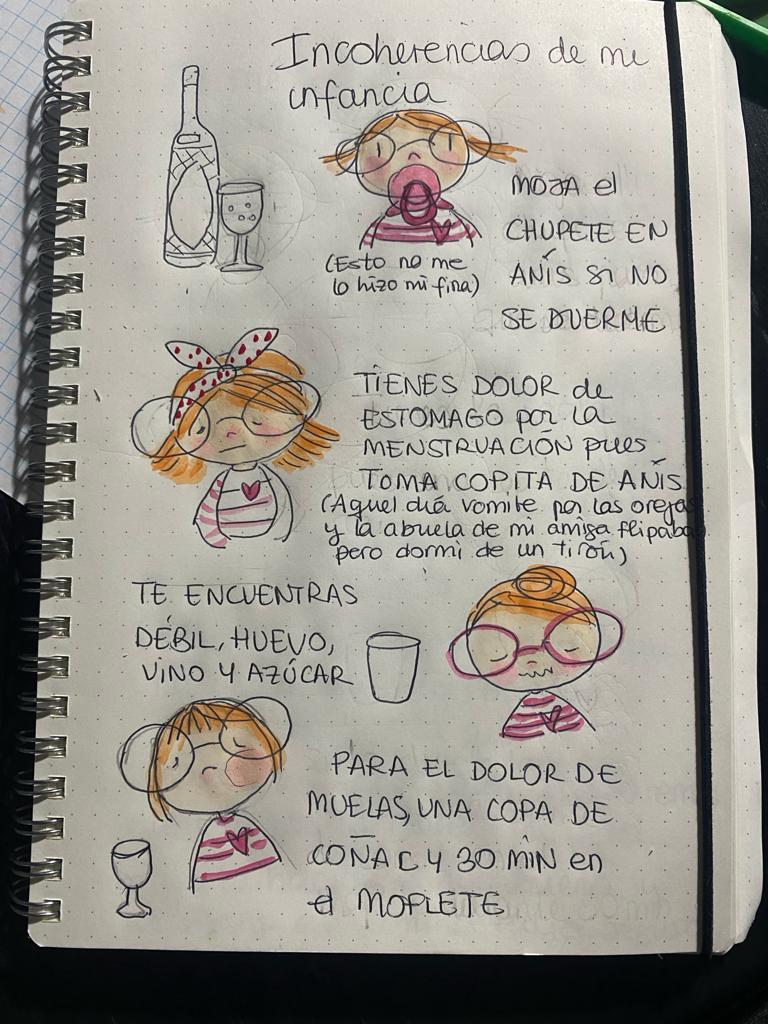 Incoherencias de mi
infancia
MOJA el
CHUPETE EN
ANÍS SI NO
SE DUERME
(Esto no me
lo hizo mi fina)
TIENES DOLOR de
ESTOMAGO por LA
MENSTRUACIÓN pues
TOMA COPITA DE ANÍS
(Aquel día vomite por las orejas
y la abuela de mi amiga flipaba
pero dormi de un tirón)
TE ENCUENTRAS
DÉBIL, HUEVO,
VINO Y AZÚCAR
PARA EL DOLOR DE
MUELAS, UNA COPA DE
COÑAC Y 30 MIN en
el MOPLETE